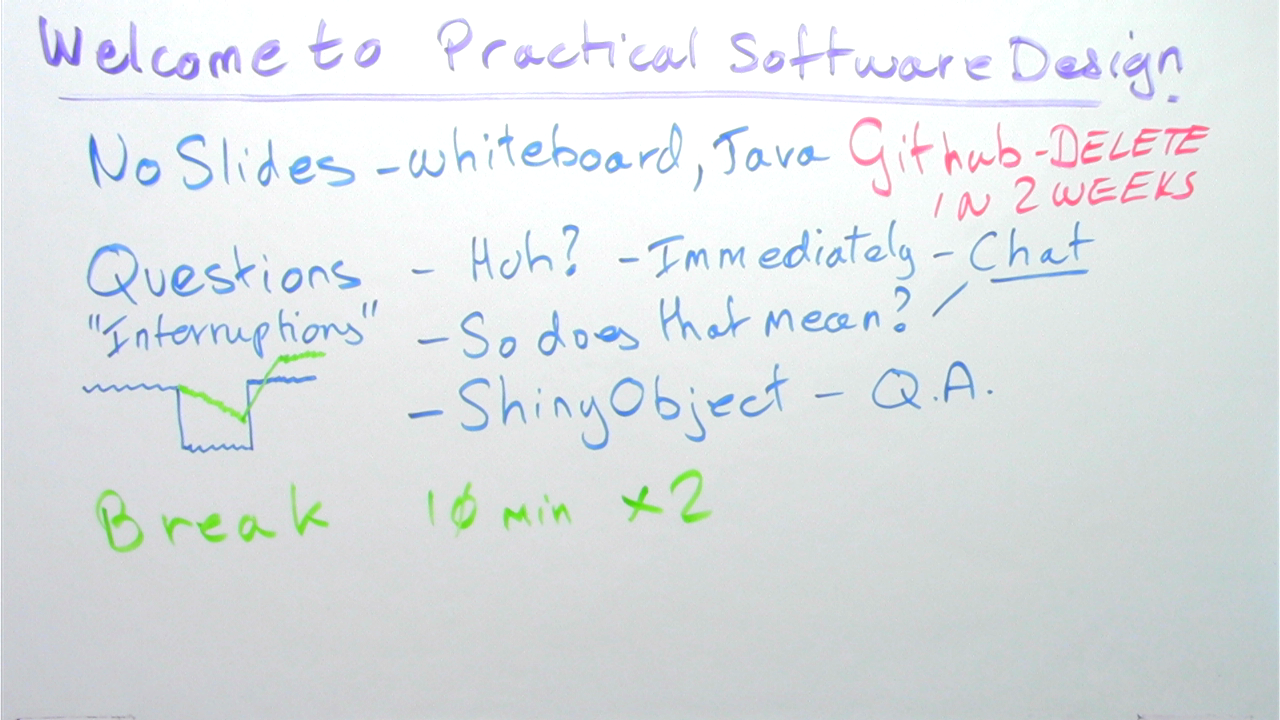 Welcome to Practical Software Design.
No Slides - whiteboard, Java Github - DELETE
IN 2 WEEKS
Questions - Huh? - Immediately - Chat
"Interruptions" - So does that mean?
- Shiny Object - Q.A.
Break 10 min x2